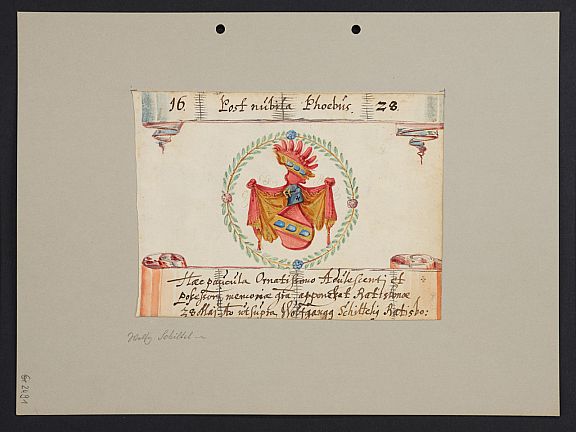 16 Post nubila Phoebus. 28
Hæc paucula Ornatissimo Adulescenti et
posessori memoriæ grã apponebat Ratisbonæ
28 Maj Ao ut supra Wolfgangg Schiltelig Ratisbo:
Wolfg. Schiltel
Gr 2491